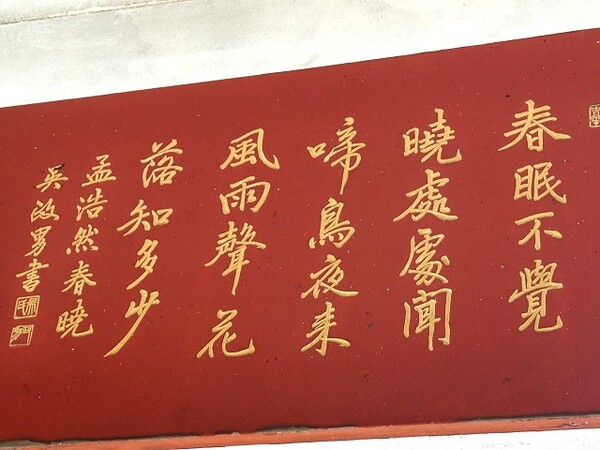 春眠不覺
曉處處聞
啼鳥夜来
風雨聲花
落知多少
孟浩然春曉
吳政男書